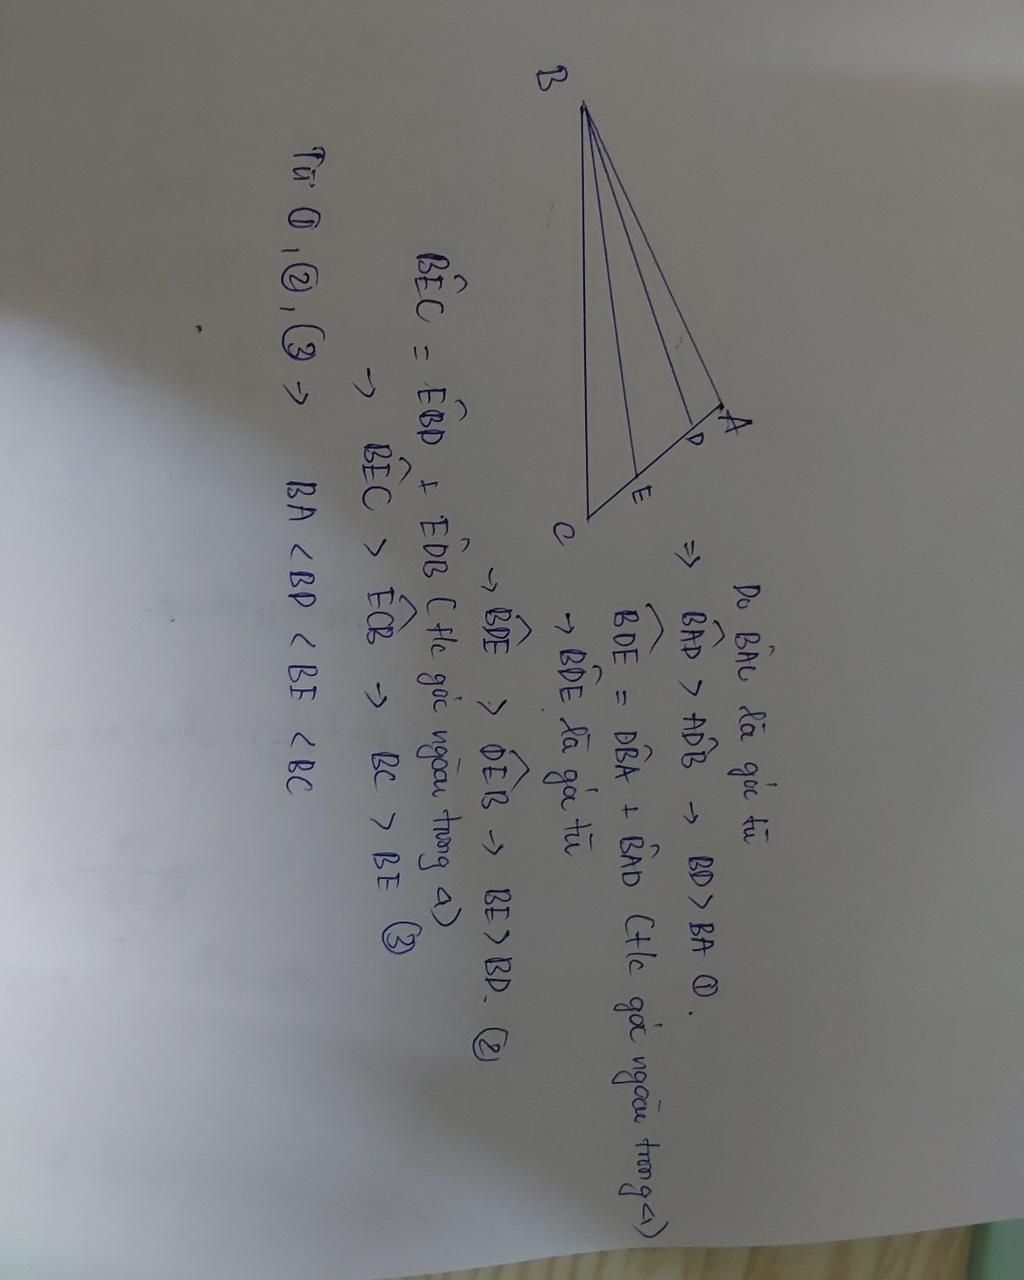 B
A
D
E
C
Do B̂AC là góc tù
⇒ B̂AD > AD̂B → BD > BA ①.
B̂DE = DB̂A + B̂AD (t/c góc ngoài trong Δ)
→ BD̂E là góc tù
→ BD̂E > DÊB → BE > BD. ②
BÊC = EB̂D + ED̂B (t/c góc ngoài trong Δ)
→ BÊC > EĈB → BC > BE ③
Từ ①, ②, ③ → BA < BD < BE < BC